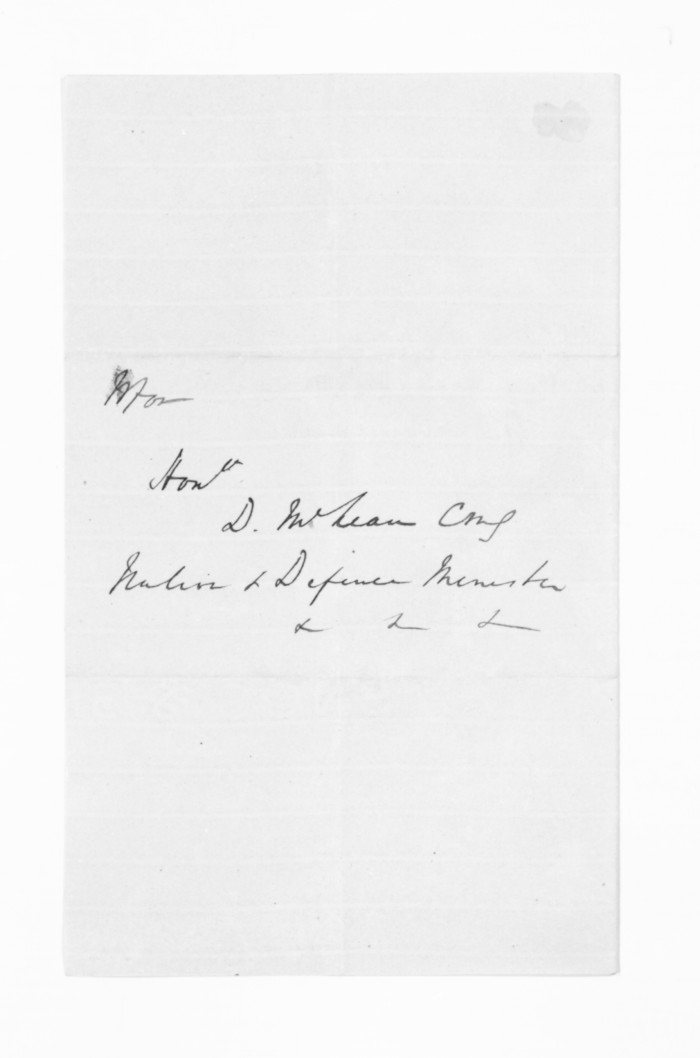 For
Honle
D. McLean CMG
Native & Defence Minister
& & &